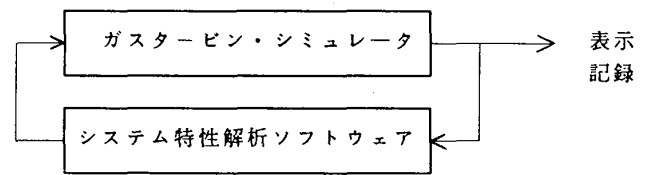 ガスタービン・シミュレータ
表示
記録
システム特性解析ソフトウェア